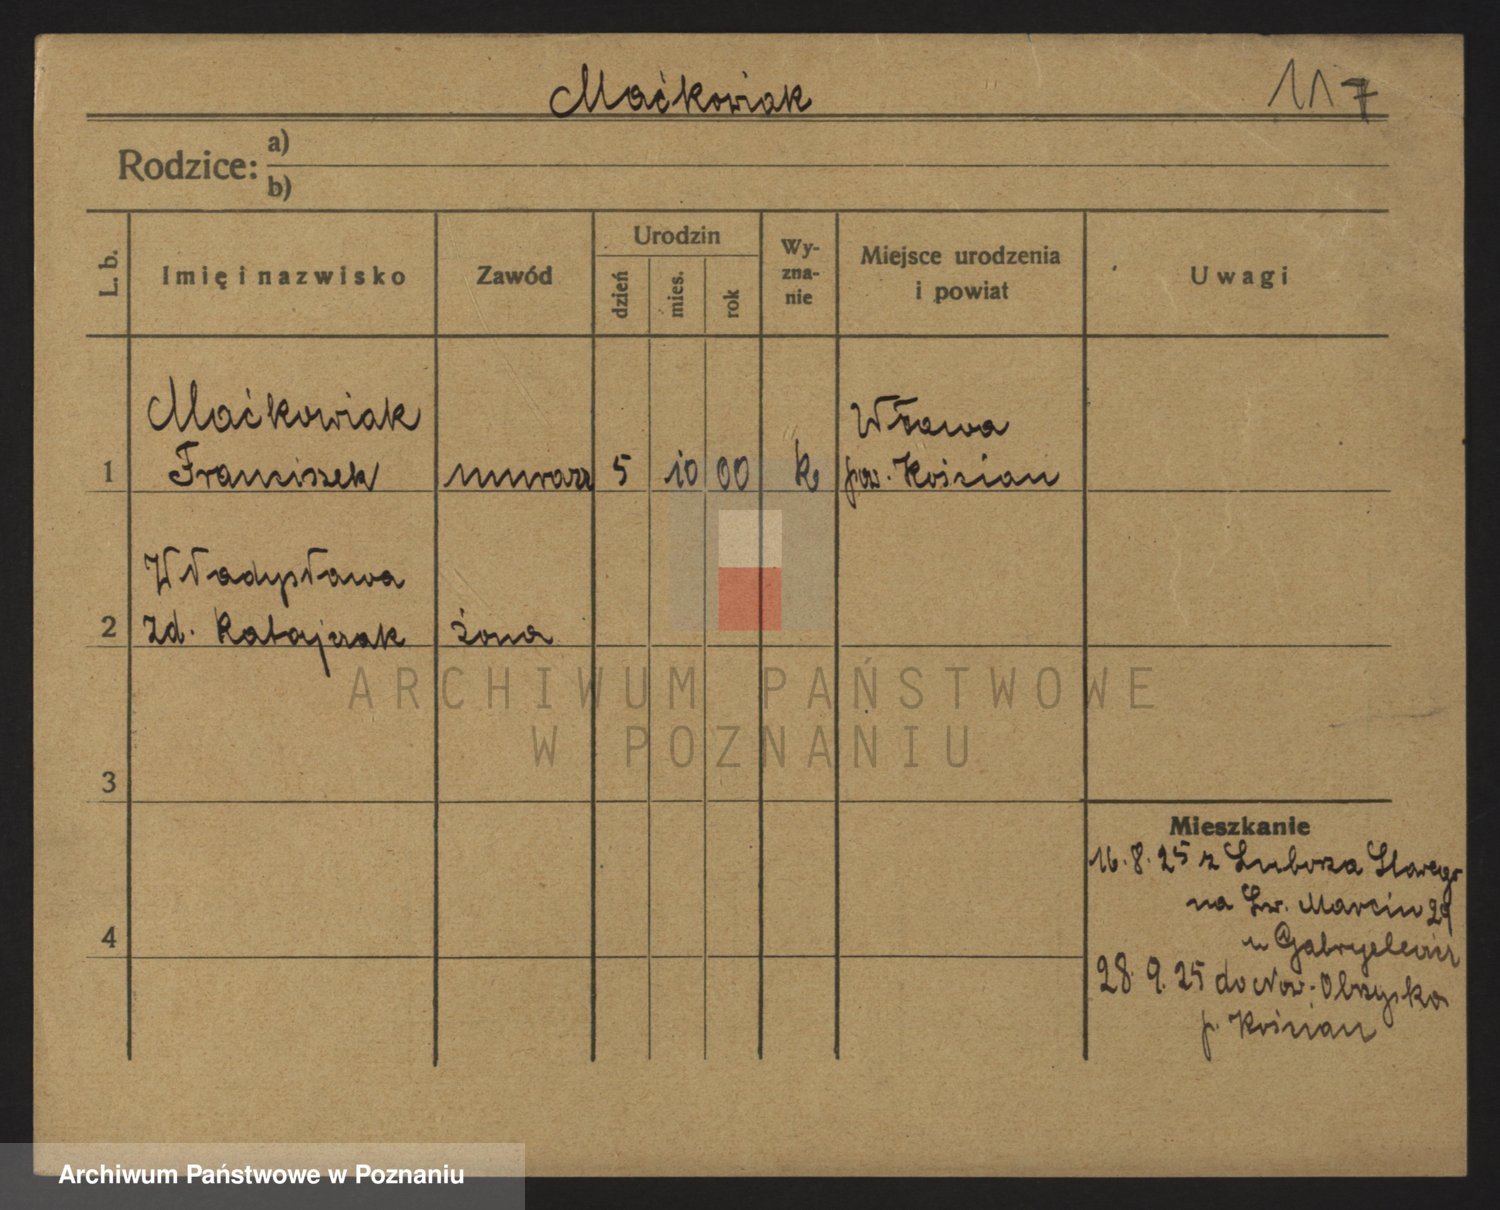 Maćkowiak
117
Rodzice:
a)
b)
L. b.
Imię i nazwisko
Zawód
Urodzin
dzień
mies.
rok
Wy-
zna-
nie
Miejsce urodzenia
i powiat
Uwagi
Maćkowiak
Wława
1 Franciszek murarz 5 10 00 k pow. Kościan
Władysława
2 zd. Ratajczak żona
ARCHIWUM PAŃSTWOWE
W POZNANIU
3
Mieszkanie
16.8.25 z Luborza Starego
na Św. Marcin 29
4
u Gabryelewicz
28.9.25 do Now.
p. Kościan
Archiwum Państwowe w Poznaniu